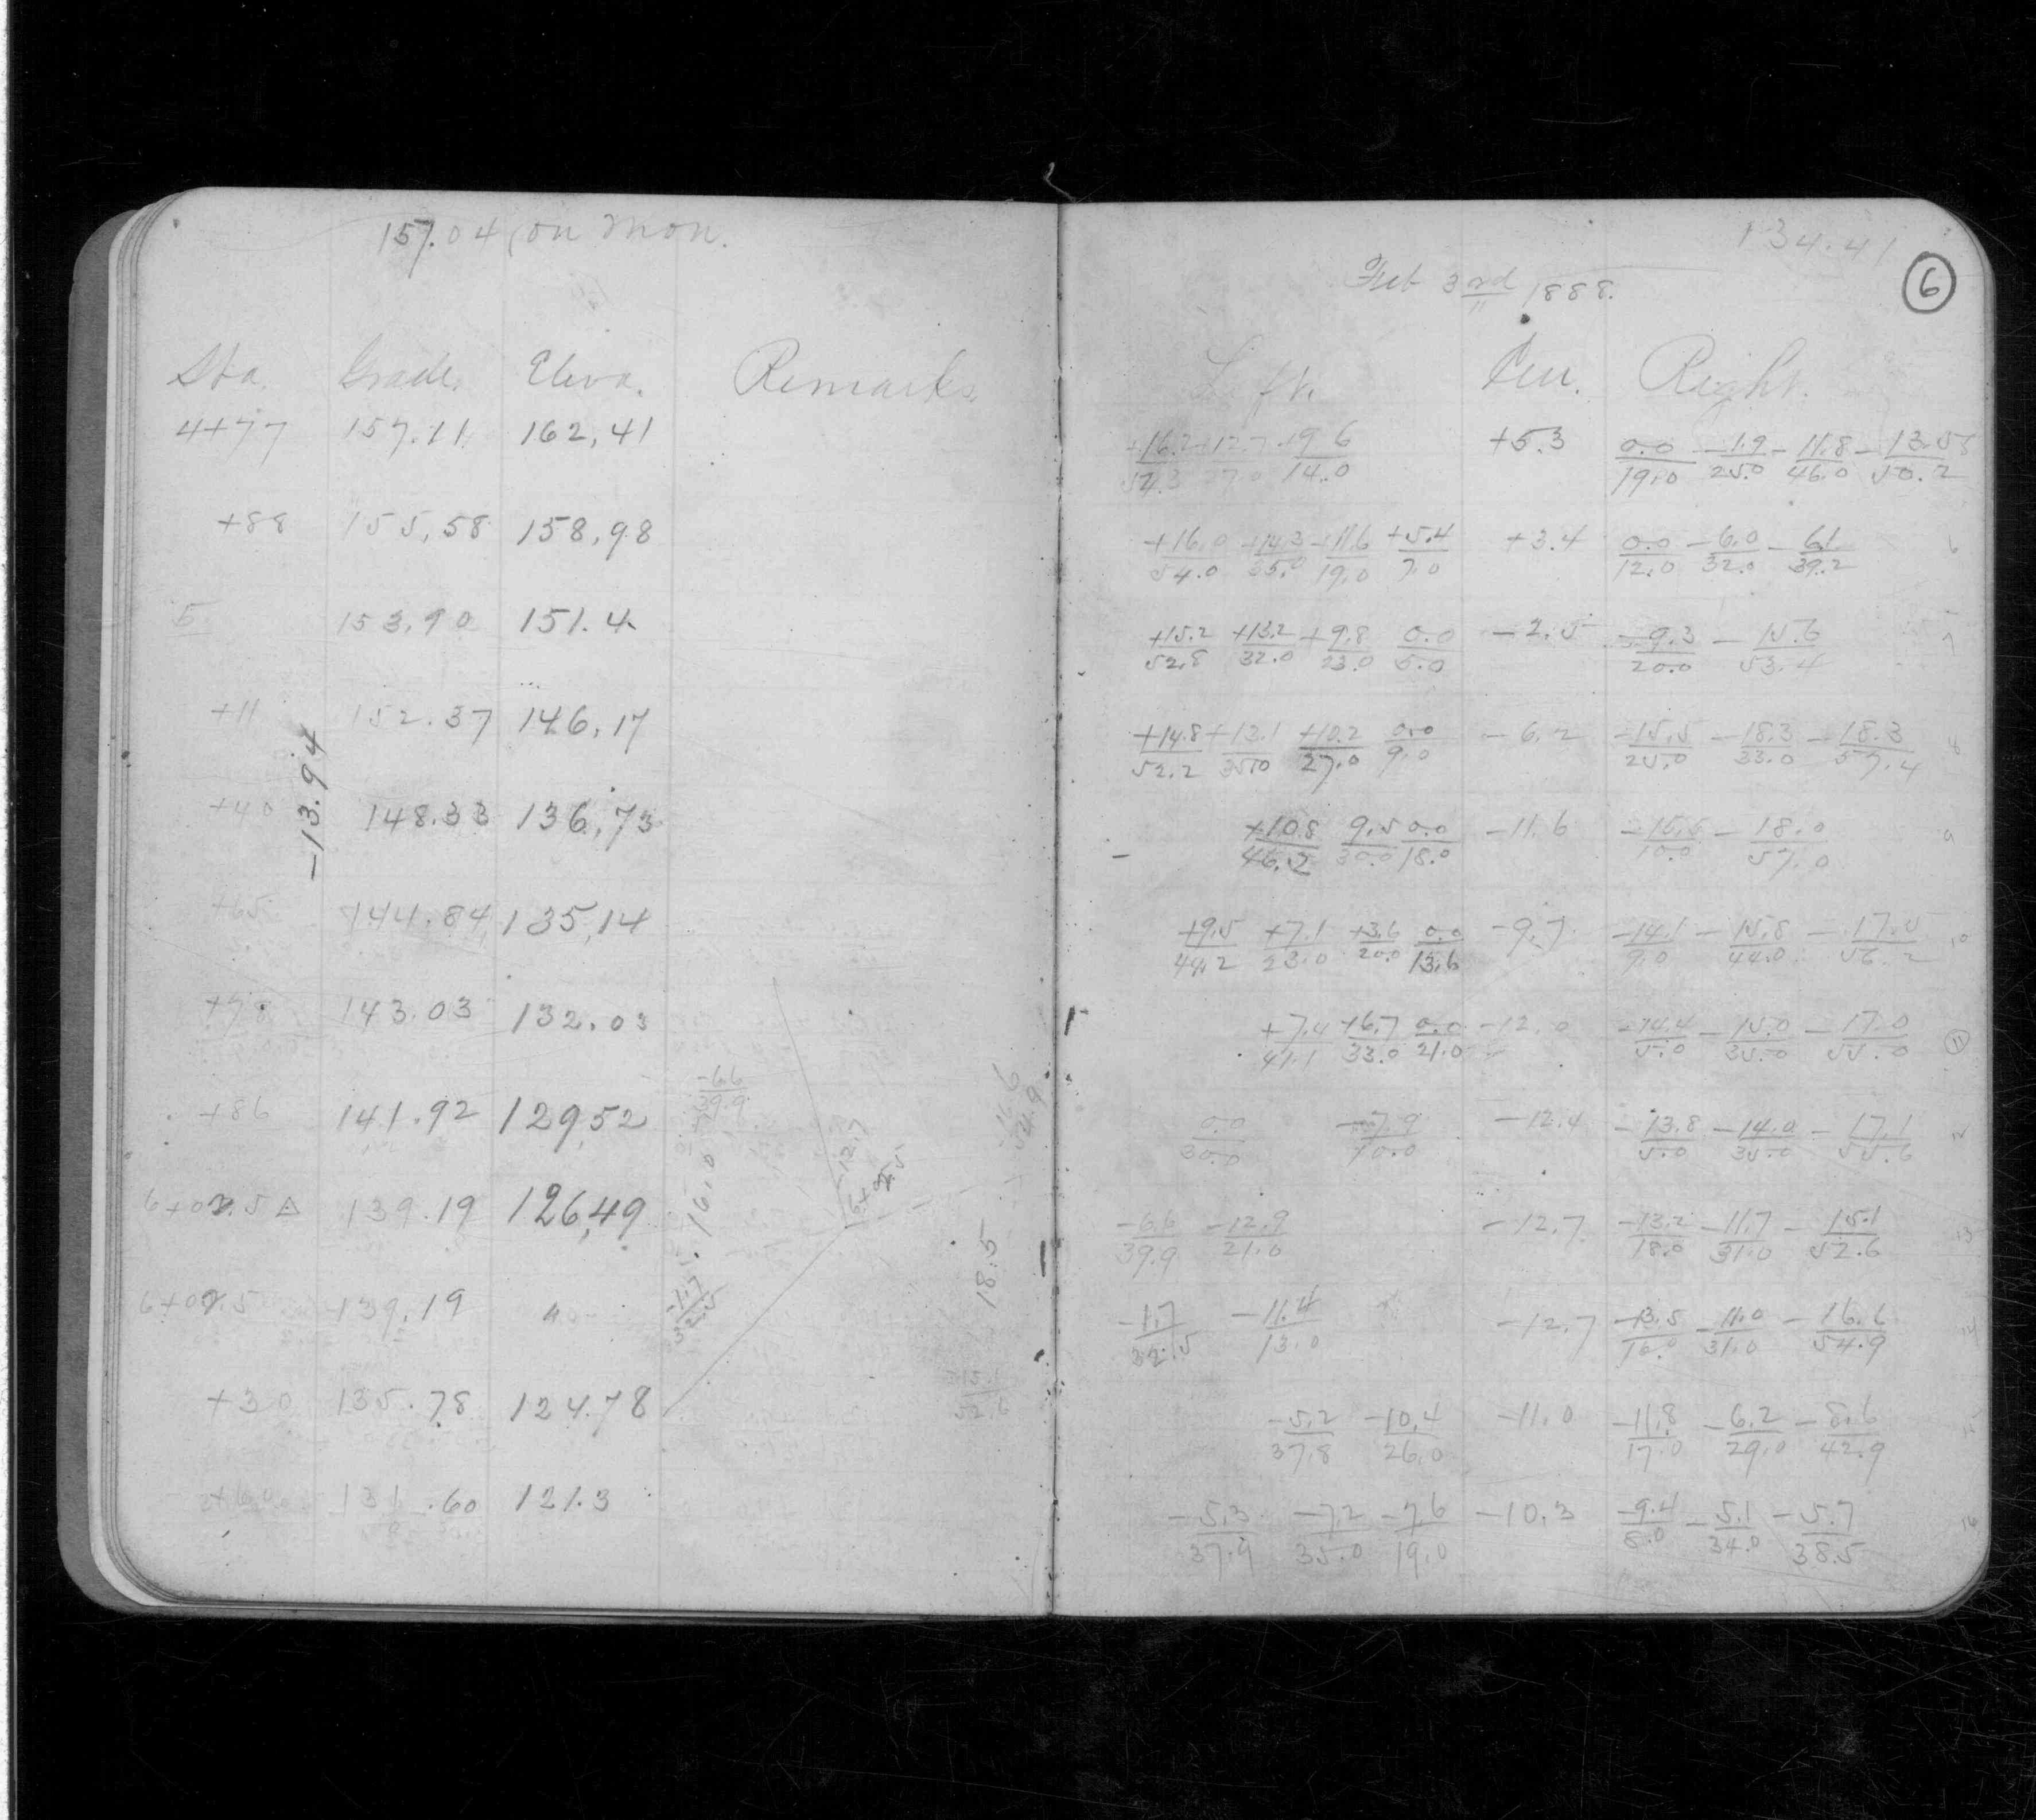 157.04 (on Mon.
Sta. Grade. Eleva. Remarks.
4+77 157.11 162,41
+88 155,58 158,98
5 153,90 151.4
+11 152.37 146,17
+40 148.33 136,73
-13.94
+65 144.84 135,14
+78 143.03 132.03
+86 141.92 129,52
6+02.5 △ 139.19 126,49
6+02.5 139.19 "
+30 135.78 124.78
+60 131.60 121.3
-6.6/39.9
16.0
-1.7/32.5
-12.7
6+02.5
18.5
-16.6/54.9
-15.1/52.6
134.41
6
Feb 3rd 1888.
Left. Cen. Right.
+16.2/54.3 +12.7/27.0 +9.6/14.0 +5.3 0.0/19.0 -1.9/25.0 -11.8/46.0 -13.5/50.2
+16.0/54.0 +14.3/35.0 +11.6/19.0 +5.4/7.0 +3.4 0.0/12.0 -6.0/32.0 -6.1/39.2 6
+15.2/52.8 +13.2/32.0 +9.8/23.0 0.0/5.0 -2.5 -9.3/20.0 -15.6/53.4 7
+14.8/52.2 +13.1/35.0 +10.2/27.0 0.0/9.0 -6.2 -15.5/25.0 -18.3/33.0 -18.3/57.4 8
+10.8/46.2 9.5/30.0 0.0/18.0 -11.6 -15.5/10.0 -18.0/57.0 9
+9.5/44.2 +7.1/23.0 +3.6/20.0 0.0/13.6 -9.7 -14.1/9.0 -15.8/44.0 -17.5/56.2 10
+7.4/41.1 +6.7/33.0 0.0/21.0 -12.0 -14.4/5.0 -15.0/35.0 -17.0/55.0 11
0.0/30.0 -7.9/10.0 -12.4 -13.8/5.0 -14.0/35.0 -17.1/55.6 12
-6.6/39.9 -12.9/21.0 -12.7 -13.2/18.0 -11.7/31.0 -15.1/52.6 13
-1.7/32.5 -11.4/13.0 -12.7 -13.5/16.0 -11.0/31.0 -16.6/54.9 14
-5.2/37.8 -10.4/26.0 -11.0 -11.8/17.0 -6.2/29.0 -8.6/42.9 15
-5.3/37.9 -7.2/35.0 -7.6/19.0 -10.3 -9.4/8.0 -5.1/34.0 -5.7/38.5 16